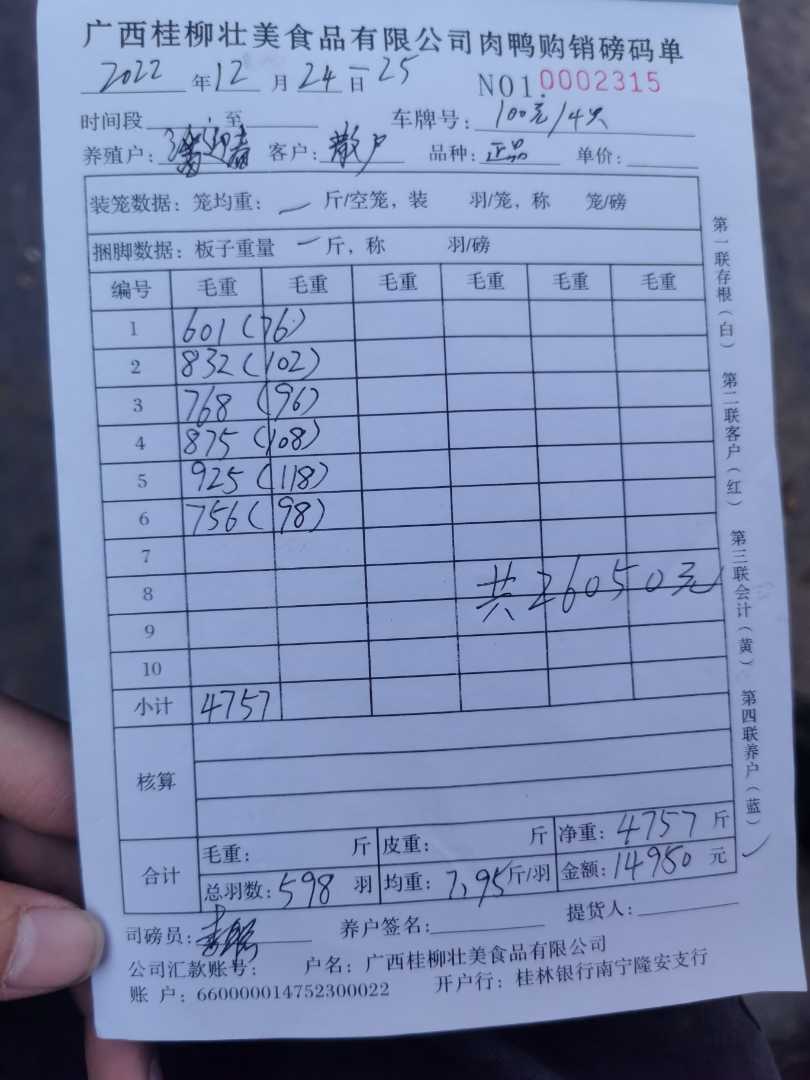 广西桂柳壮美食品有限公司肉鸭购销磅码单
2022 年 12 月 24-25 日
NO1.0002315
时间段 至 车牌号: 100元/4只
养殖户: 迎春 客户: 散户 品种: 正品 单价:
装笼数据: 笼均重: — 斤/空笼, 装 羽/笼, 称 笼/磅
捆脚数据: 板子重量 — 斤, 称 羽/磅
编号 毛重 毛重 毛重 毛重 毛重 毛重
1 601 (76)
2 832 (102)
3 768 (96)
4 875 (108)
5 925 (118)
6 756 (98)
7
8 共26050元
9
10
小计 4757
核算
合计 毛重: 斤 皮重: 斤 净重: 4757 斤
总羽数: 598 羽 均重: 7.95 斤/羽 金额: 14950 元
司磅员: 养户签名: 提货人:
公司汇款账号: 户名: 广西桂柳壮美食品有限公司
账 户: 660000014752300022 开户行: 桂林银行南宁隆安支行
第一联存根(白) 第二联客户(红) 第三联会计(黄) 第四联养户(蓝)